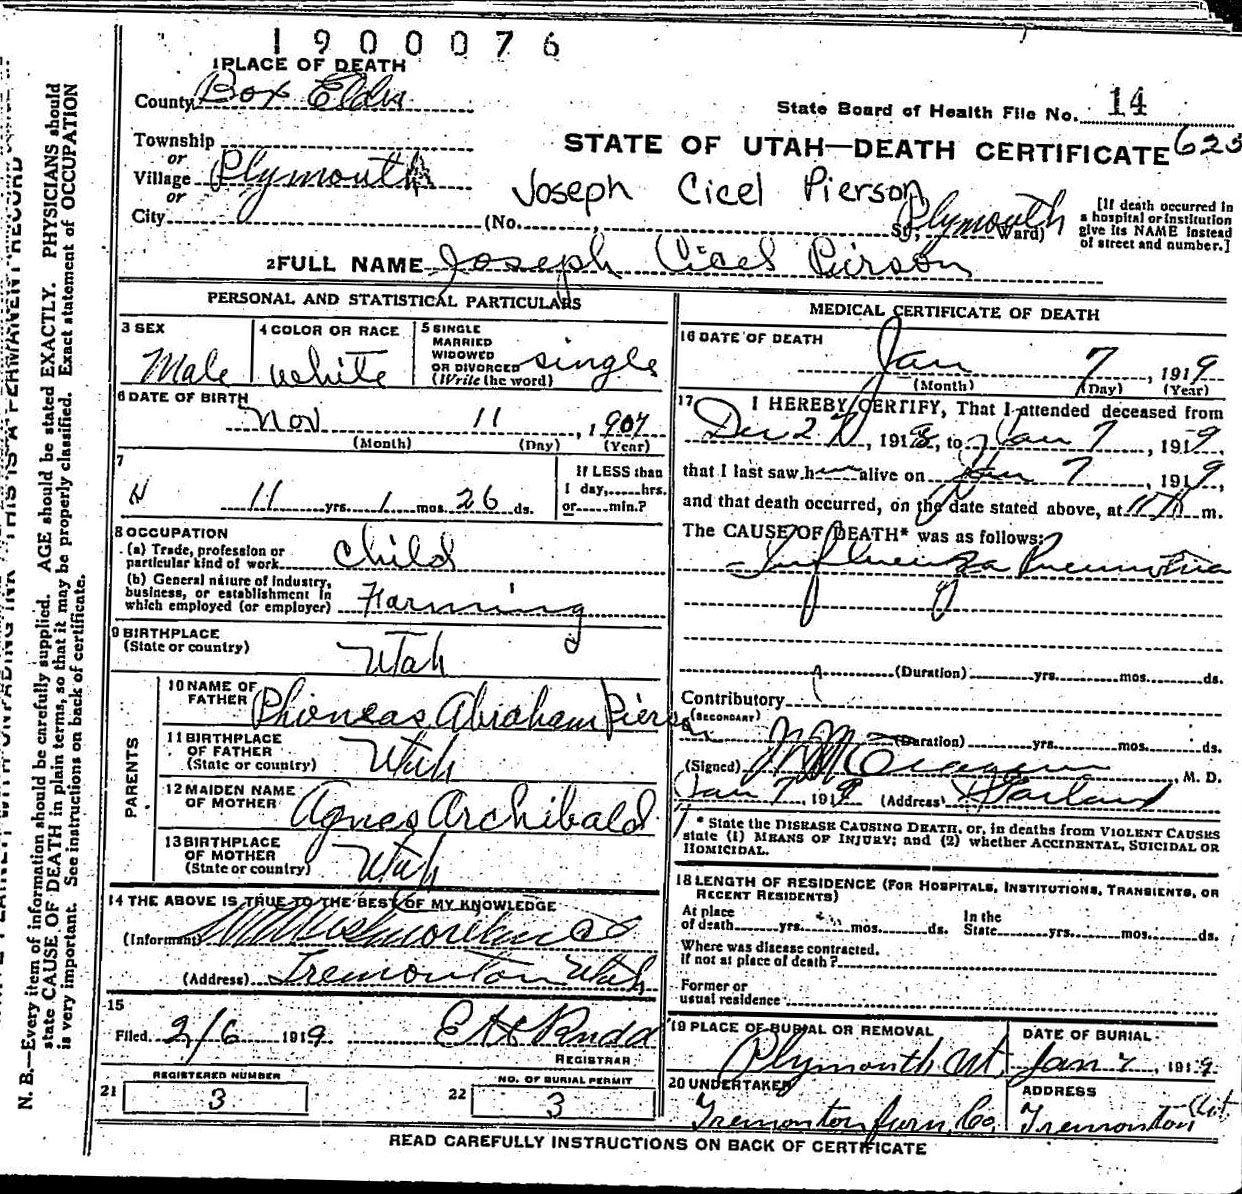 1900076
1 PLACE OF DEATH
County Box Elder
State Board of Health File No. 14
Township
or
Village Plymouth
or
City
STATE OF UTAH—DEATH CERTIFICATE 625
Joseph Cicel Pierson
(No. St., Plymouth Ward)
[If death occurred in
a hospital or institution
give its NAME instead
of street and number.]
2 FULL NAME Joseph Cicel Pierson
PERSONAL AND STATISTICAL PARTICULARS
3 SEX
Male
4 COLOR OR RACE
white
5 SINGLE
MARRIED
WIDOWED
OR DIVORCED
(Write the word)
single
6 DATE OF BIRTH
Nov 11, 1907
(Month) (Day) (Year)
7
11 yrs. 1 mos. 26 ds.
If LESS than
1 day,......hrs.
or......min.?
8 OCCUPATION
(a) Trade, profession or
particular kind of work child
(b) General nature of industry,
business, or establishment in
which employed (or employer) Farming
9 BIRTHPLACE
(State or country) Utah
PARENTS
10 NAME OF
FATHER Phioneas Abraham Pierson
11 BIRTHPLACE
OF FATHER
(State or country) Utah
12 MAIDEN NAME
OF MOTHER Agnes Archibald
13 BIRTHPLACE
OF MOTHER
(State or country) Utah
14 THE ABOVE IS TRUE TO THE BEST OF MY KNOWLEDGE
(Informant)
(Address) Tremonton Utah
15
Filed 2/6 1919
REGISTRAR
REGISTERED NUMBER
21 3
NO. OF BURIAL PERMIT
22 3
MEDICAL CERTIFICATE OF DEATH
16 DATE OF DEATH
Jan 7, 1919
(Month) (Day) (Year)
17 I HEREBY CERTIFY, That I attended deceased from
Dec 2, 1918, to Jan 7, 1919,
that I last saw him alive on Jan 7, 1919,
and that death occurred, on the date stated above, at 11 A m.
The CAUSE OF DEATH* was as follows:
Influenza Pneumonia
(Duration) yrs. mos. ds.
Contributory
(SECONDARY)
(Duration) yrs. mos. ds.
(Signed) , M. D.
Jan 7, 1919 (Address) Garland
* State the DISEASE CAUSING DEATH, or, in deaths from VIOLENT CAUSES
state (1) MEANS OF INJURY; and (2) whether ACCIDENTAL, SUICIDAL OR
HOMICIDAL.
18 LENGTH OF RESIDENCE (FOR HOSPITALS, INSTITUTIONS, TRANSIENTS, OR
RECENT RESIDENTS)
At place
of death yrs. mos. ds.
In the
State yrs. mos. ds.
Where was disease contracted,
if not at place of death?
Former or
usual residence
19 PLACE OF BURIAL OR REMOVAL
Plymouth Ut
DATE OF BURIAL
Jan 7, 1919
20 UNDERTAKER
Tremonton Furn. Co.
ADDRESS
Tremonton Ut
READ CAREFULLY INSTRUCTIONS ON BACK OF CERTIFICATE
N. B.—Every item of information should be carefully supplied. AGE should be stated EXACTLY. PHYSICIANS should
state CAUSE OF DEATH in plain terms, so that it may be properly classified. Exact statement of OCCUPATION
is very important. See instructions on back of certificate.